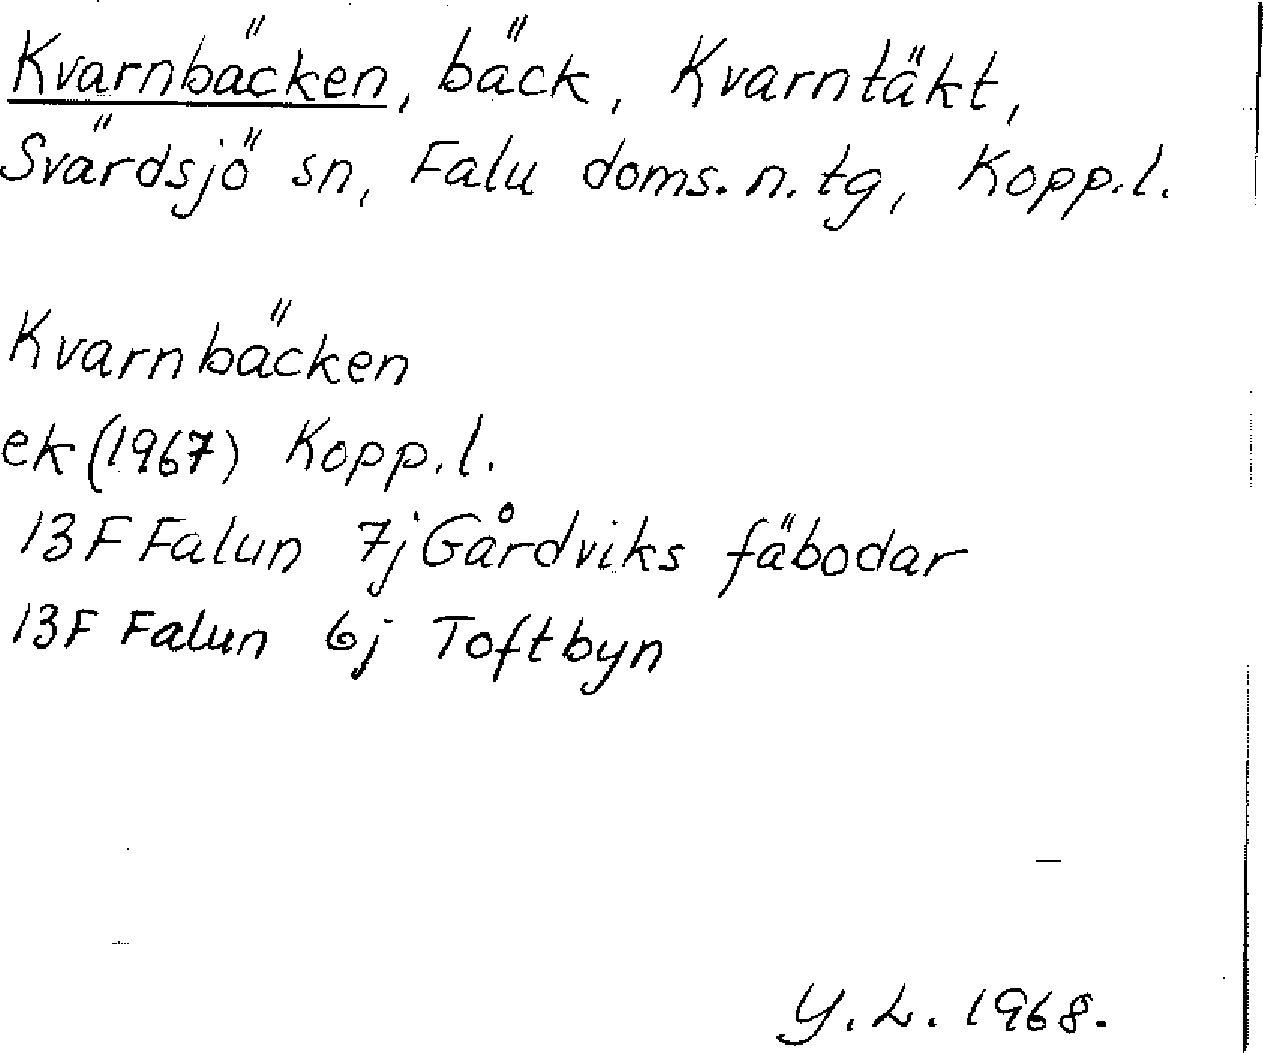 Kvarnbäcken, bäck, Kvarntäkt,
Svärdsjö sn, Falu doms.n.tg, Kopp.l.
Kvarnbäcken
ek (1967) Kopp.l.
13F Falun 7j Gårdviks fäbodar
13F Falun 6j Toftbyn
Y.L. 1968.